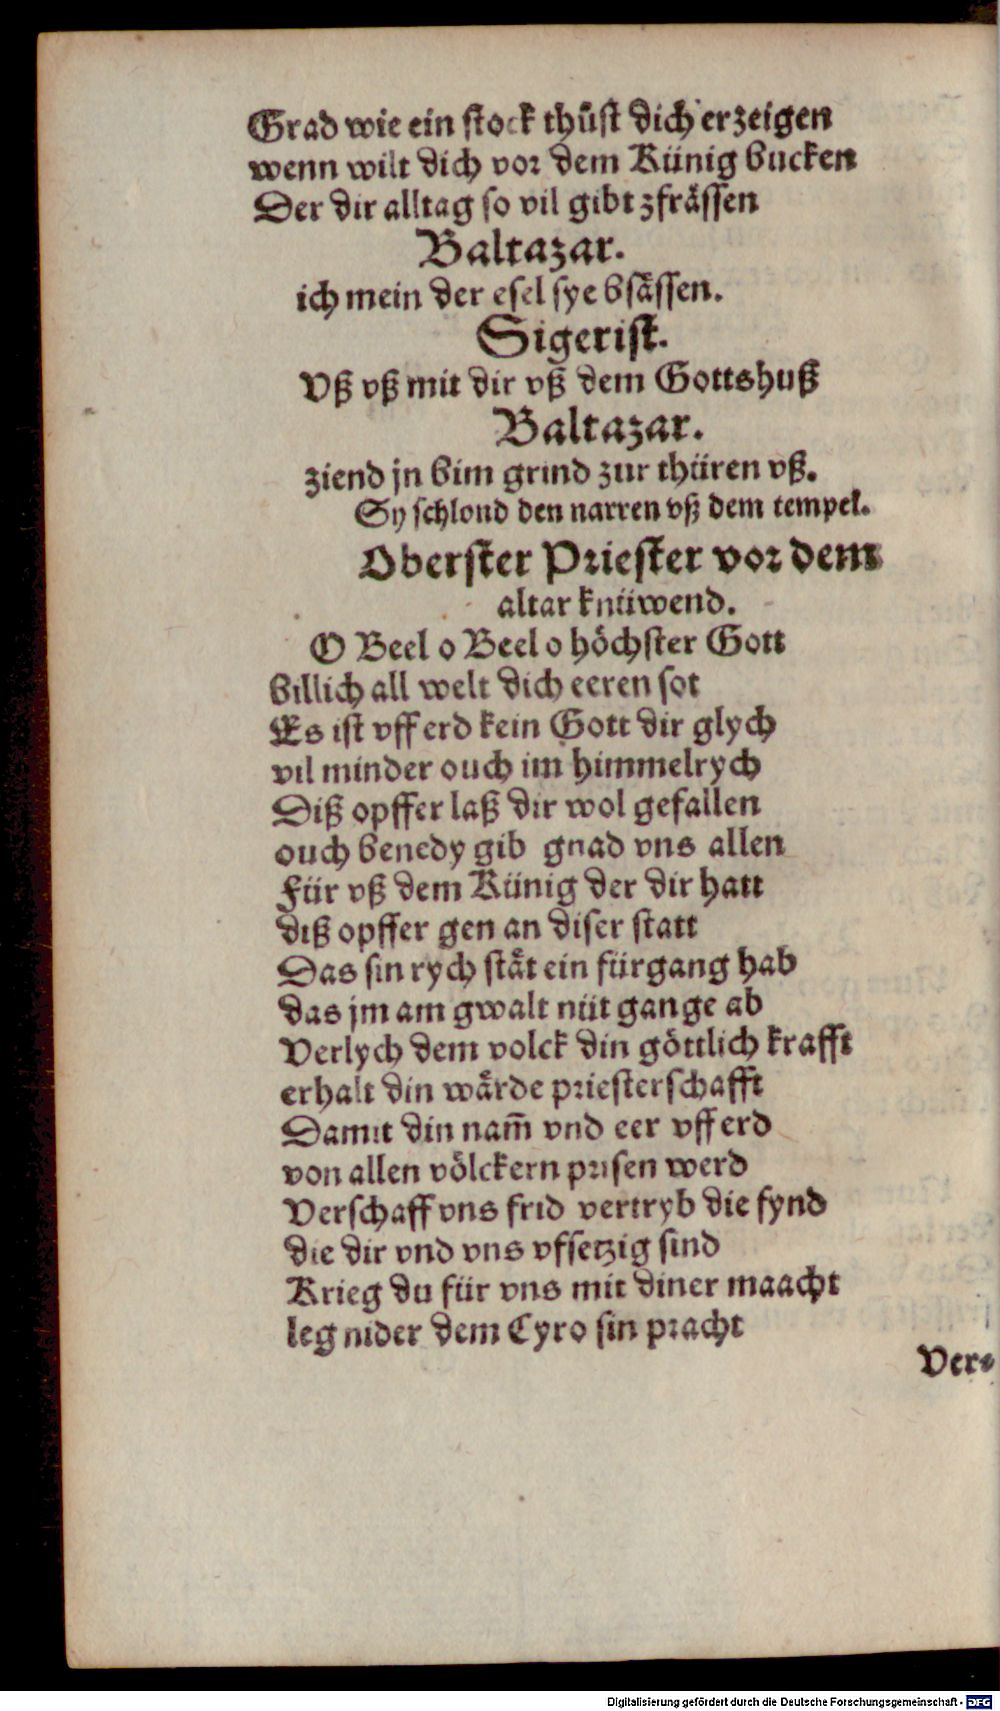 Grad wie ein stock thůst dich erzeigen
wenn wilt dich vor dem Künig bucken
Der dir alltag so vil gibt zfrässen
Baltazar.
ich mein der esel sye bsässen.
Sigerist.
Vß vß mit dir vß dem Gottshuß
Baltazar.
ziend jn bim grind zur thüren vß.
Sy schlond den narren vß dem tempel.
Oberster Priester vor dem
altar knüwend.
O Beel o Beel o höchster Gott
billich all welt dich eeren sot
Es ist vff erd kein Gott dir glych
vil minder ouch im himmelrych
Diß opffer laß dir wol gefallen
ouch benedy gib gnad vns allen
Für vß dem Künig der dir hatt
diß opffer gen an diser statt
Das sin rych stät ein fürgang hab
das jm am gwalt nüt gange ab
Verlych dem volck din göttlich krafft
erhalt din wärde priesterschafft
Damit din nam̄ vnd eer vff erd
von allen völckern prisen werd
Verschaff vns frid vertryb die fynd
die dir vnd vns vfsetzig sind
Krieg du für vns mit diner maacht
leg nider dem Cyro sin pracht
Ver⸗
Digitalisierung gefördert durch die Deutsche Forschungsgemeinschaft - DFG